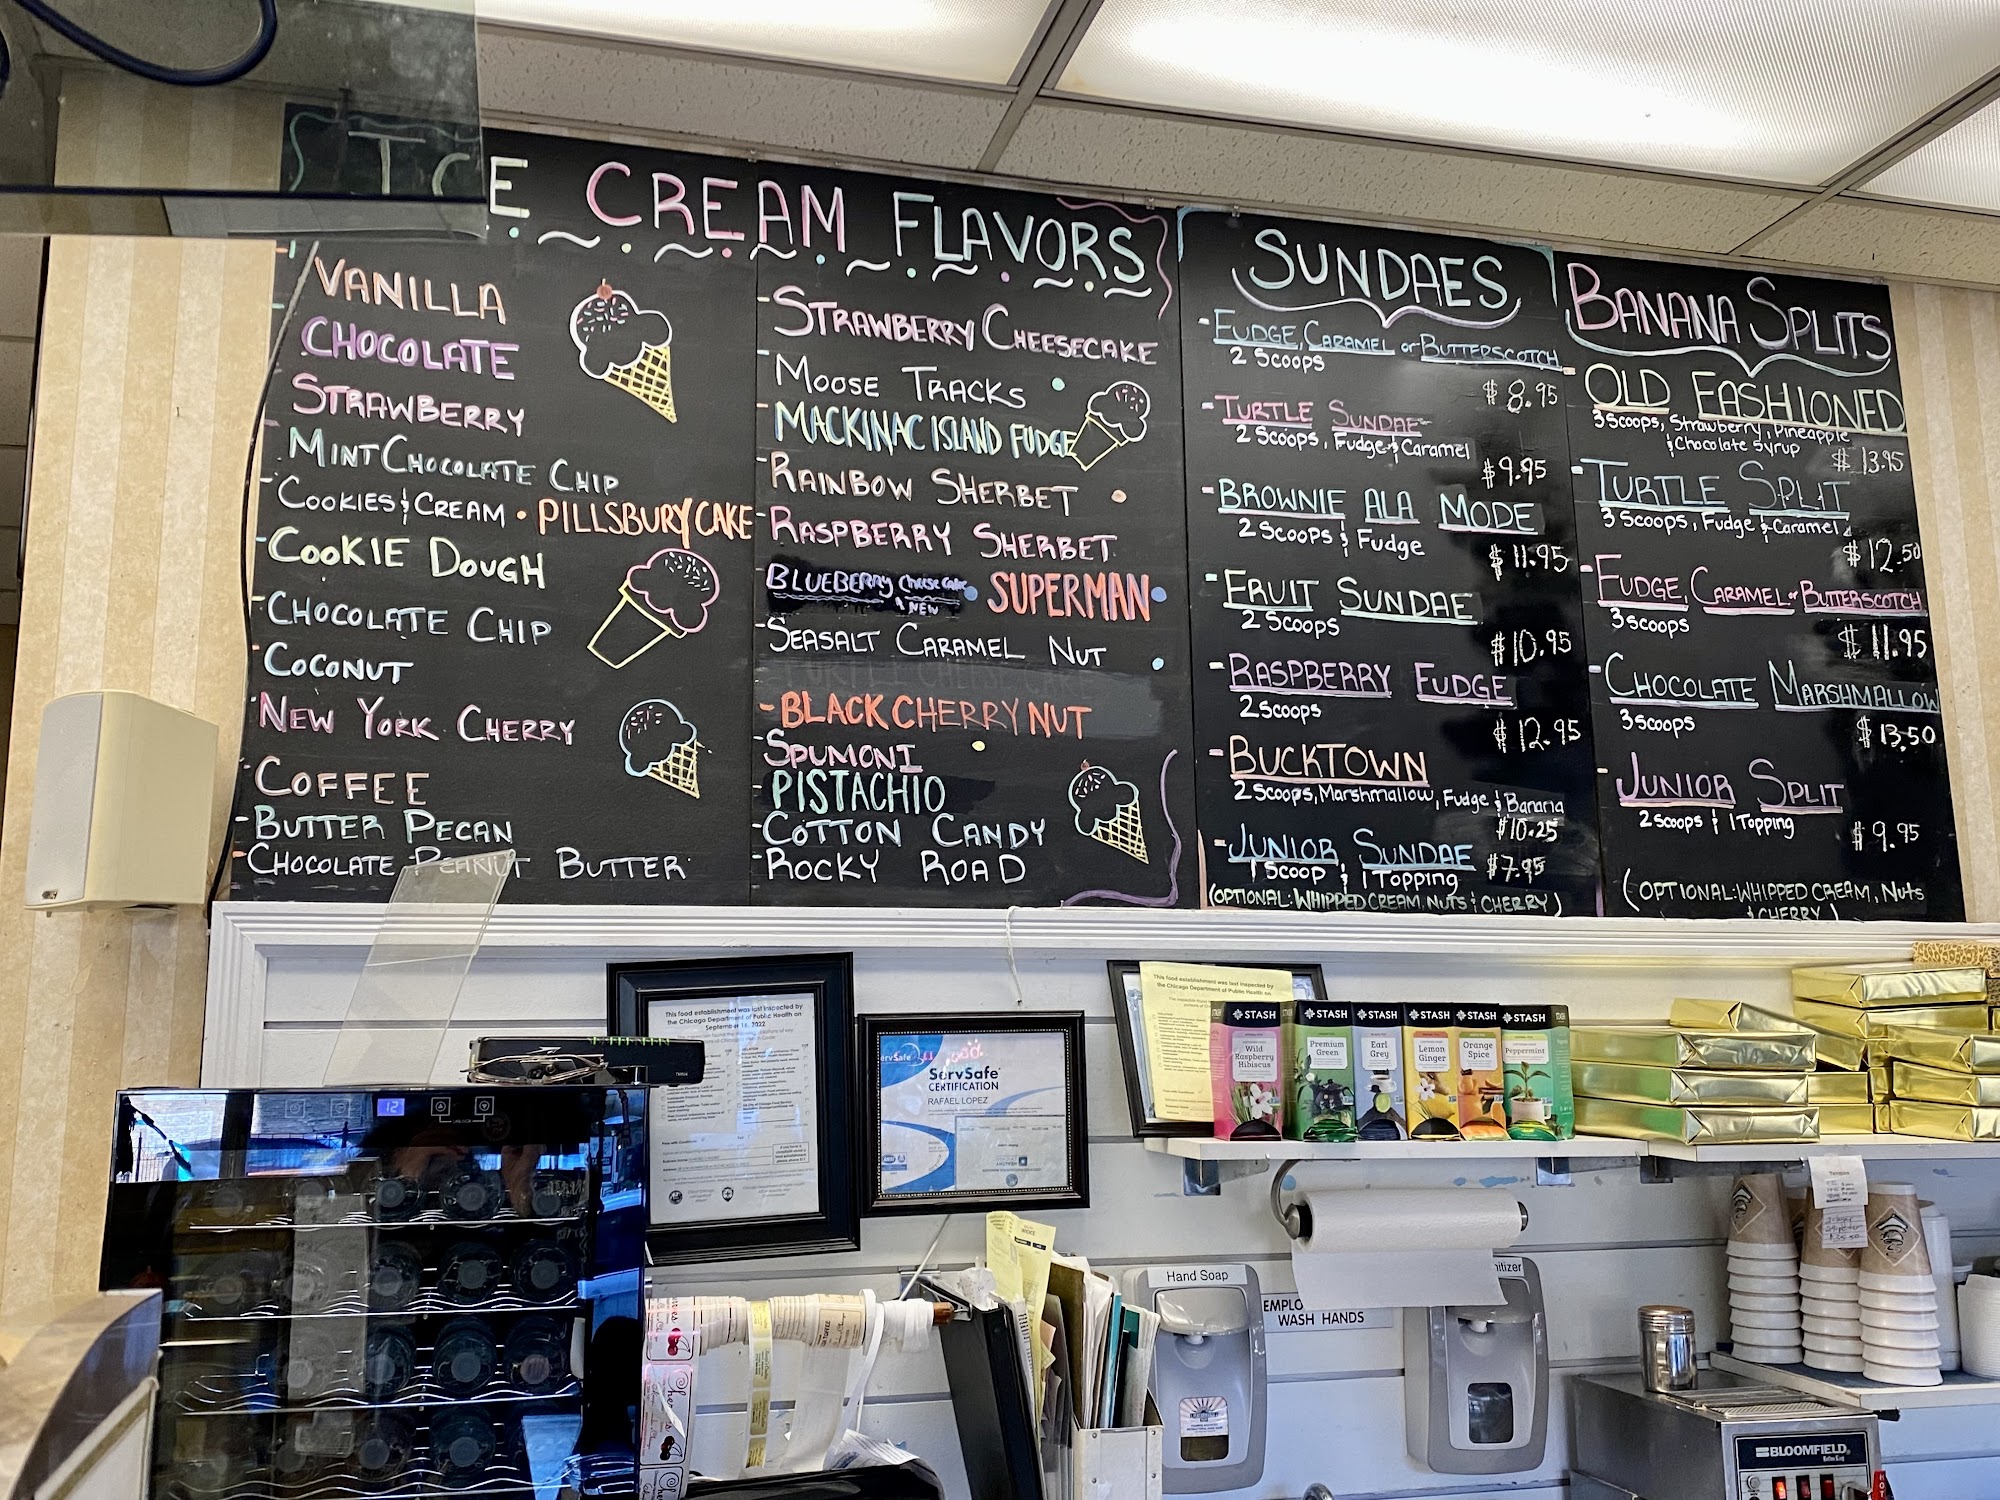 ICE CREAM FLAVORS
VANILLA
CHOCOLATE
STRAWBERRY
MINT CHOCOLATE CHIP
COOKIES & CREAM • PILLSBURY CAKE
COOKIE DOUGH
CHOCOLATE CHIP
COCONUT
NEW YORK CHERRY
COFFEE
BUTTER PECAN
CHOCOLATE PEANUT BUTTER
- STRAWBERRY CHEESECAKE
- MOOSE TRACKS
- MACKINAC ISLAND FUDGE
- RAINBOW SHERBET
- RASPBERRY SHERBET
BLUEBERRY Cheese Cake • SUPERMAN
NEW
- SEASALT CARAMEL NUT
- BLACK CHERRY NUT
- SPUMONI
- PISTACHIO
- COTTON CANDY
- ROCKY ROAD
SUNDAES
- FUDGE, CARAMEL or BUTTERSCOTCH
2 Scoops
$8.95
- TURTLE SUNDAE
2 Scoops, Fudge & Caramel
$9.95
- BROWNIE ALA MODE
2 Scoops & Fudge
$11.95
- FRUIT SUNDAE
2 Scoops
$10.95
- RASPBERRY FUDGE
2 Scoops
$12.95
- BUCKTOWN
2 Scoops, Marshmallow, Fudge & Banana
$10.25
- JUNIOR SUNDAE
1 Scoop & 1 Topping $7.95
(OPTIONAL: WHIPPED CREAM, NUTS & CHERRY)
BANANA SPLITS
- OLD FASHIONED
3 Scoops, Strawberry, Pineapple
& Chocolate Syrup
$13.95
- TURTLE SPLIT
3 Scoops, Fudge & Caramel
$12.50
- FUDGE, CARAMEL or BUTTERSCOTCH
3 Scoops
$11.95
- CHOCOLATE MARSHMALLOW
3 Scoops
$13.50
- JUNIOR SPLIT
2 Scoops & 1 Topping
$9.95
(OPTIONAL: WHIPPED CREAM, NUTS
& CHERRY)
This food establishment was last inspected by
the Chicago Department of Public Health on
September 16, 2022
ServSafe
ServSafe
CERTIFICATION
RAFAEL LOPEZ
This food establishment was last inspected by
the Chicago Department of Public Health on
STASH
Wild
Raspberry
Hibiscus
STASH
Premium
Green
STASH
Earl
Grey
STASH
Lemon
Ginger
STASH
Orange
Spice
STASH
Peppermint
12
Hand Soap
nitizer
EMPLO
WASH HANDS
BLOOMFIELD